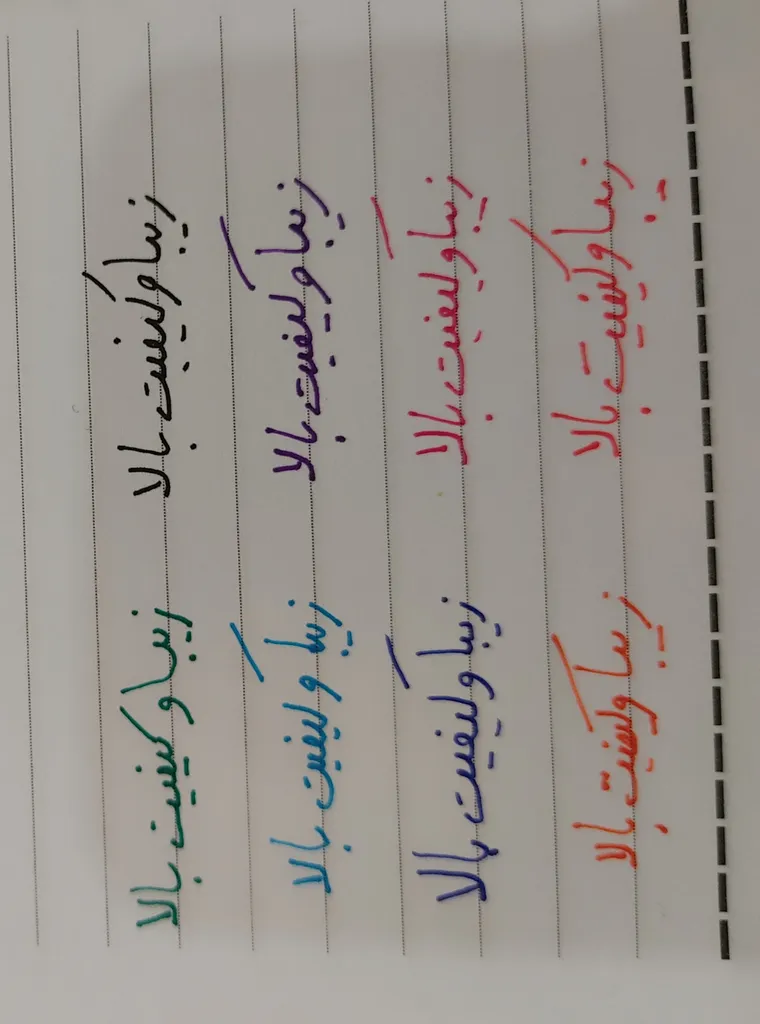 زیبا و کیفیت بالا زیبا و کیفیت بالا
زیبا و کیفیت بالا زیبا و کیفیت بالا
زیبا و کیفیت بالا زیبا و کیفیت بالا
زیبا و کیفیت بالا زیبا و کیفیت بالا